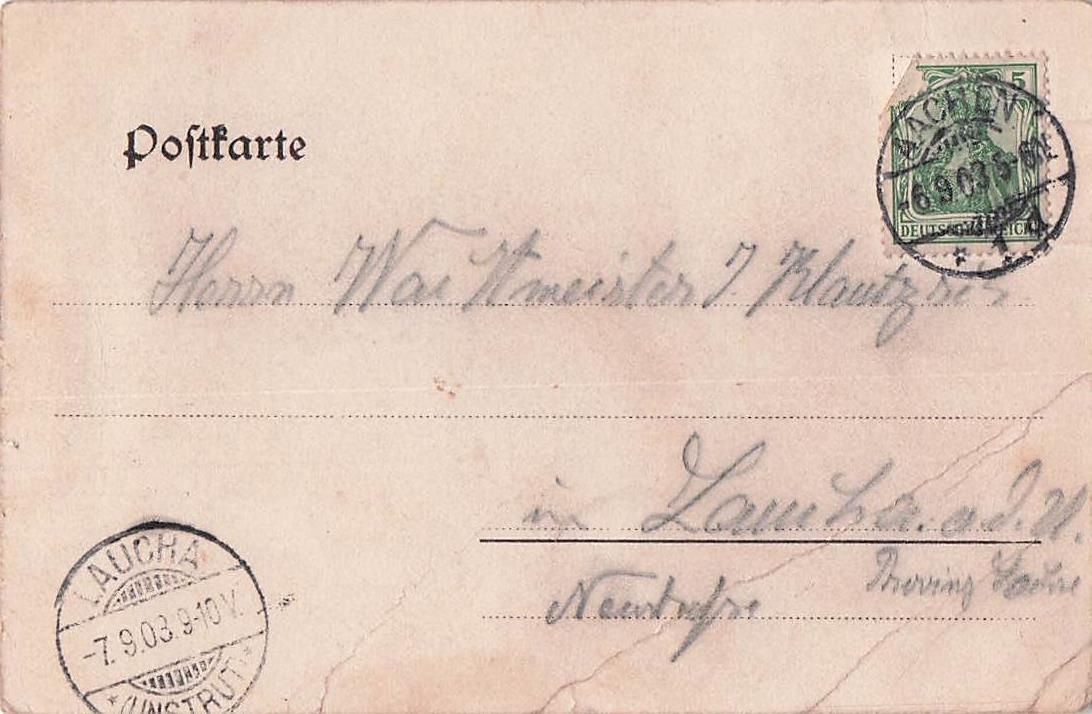 Postkarte
5
AACHEN
-6.9.03 5-6N.
DEUTSCHES REICH
* 1
Herrn Wachtmeister
in Laucha. a. d. U.
Provinz
LAUCHA
-7.9.03.9-10V.
*(UNSTRUT)*